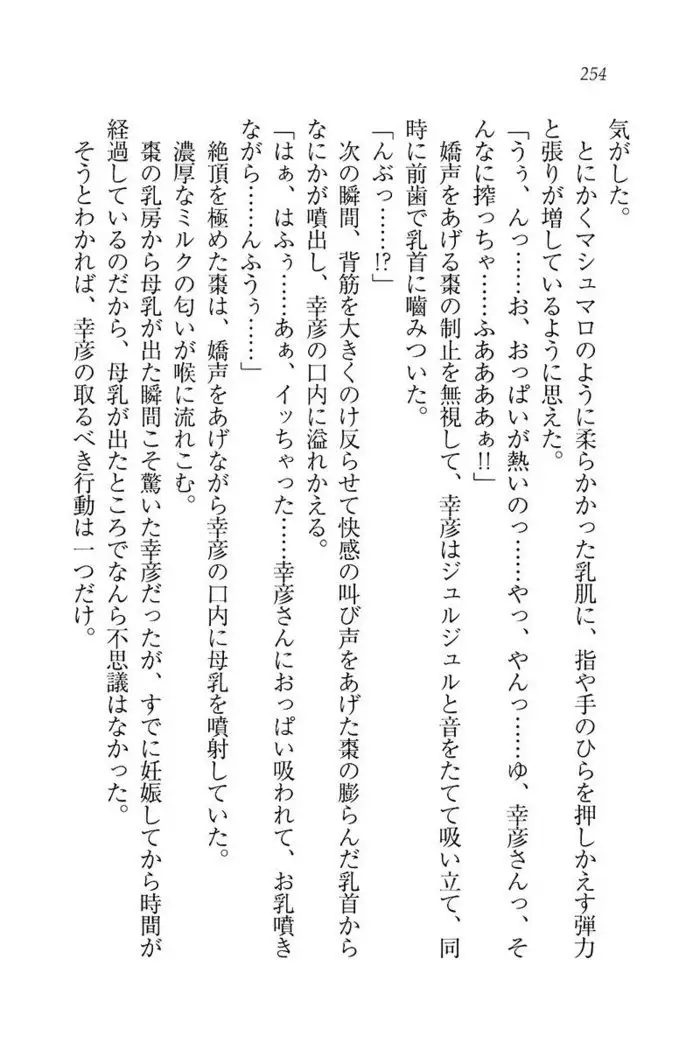 254
気がした。
とにかくマシュマロのように柔らかかった乳肌に、指や手のひらを押しかえす弾力
と張りが増しているように思えた。
「うぅ、んっ……お、おっぱいが熱いのっ……やっ、やんっ……ゆ、幸彦さんっ、そ
んなに搾っちゃ……ふああああぁ!!」
嬌声をあげる棗の制止を無視して、幸彦はジュルジュルと音をたてて吸い立て、同
時に前歯で乳首に嚙みついた。
「んぶっ……!?」
次の瞬間、背筋を大きくのけ反らせて快感の叫び声をあげた棗の膨らんだ乳首から
なにかが噴出し、幸彦の口内に溢れかえる。
「はぁ、はふぅ……あぁ、イッちゃった……幸彦さんにおっぱい吸われて、お乳噴き
ながら……んふうぅ……」
絶頂を極めた棗は、嬌声をあげながら幸彦の口内に母乳を噴射していた。
濃厚なミルクの匂いが喉に流れこむ。
棗の乳房から母乳が出た瞬間こそ驚いた幸彦だったが、すでに妊娠してから時間が
経過しているのだから、母乳が出たところでなんら不思議はなかった。
そうとわかれば、幸彦の取るべき行動は一つだけ。